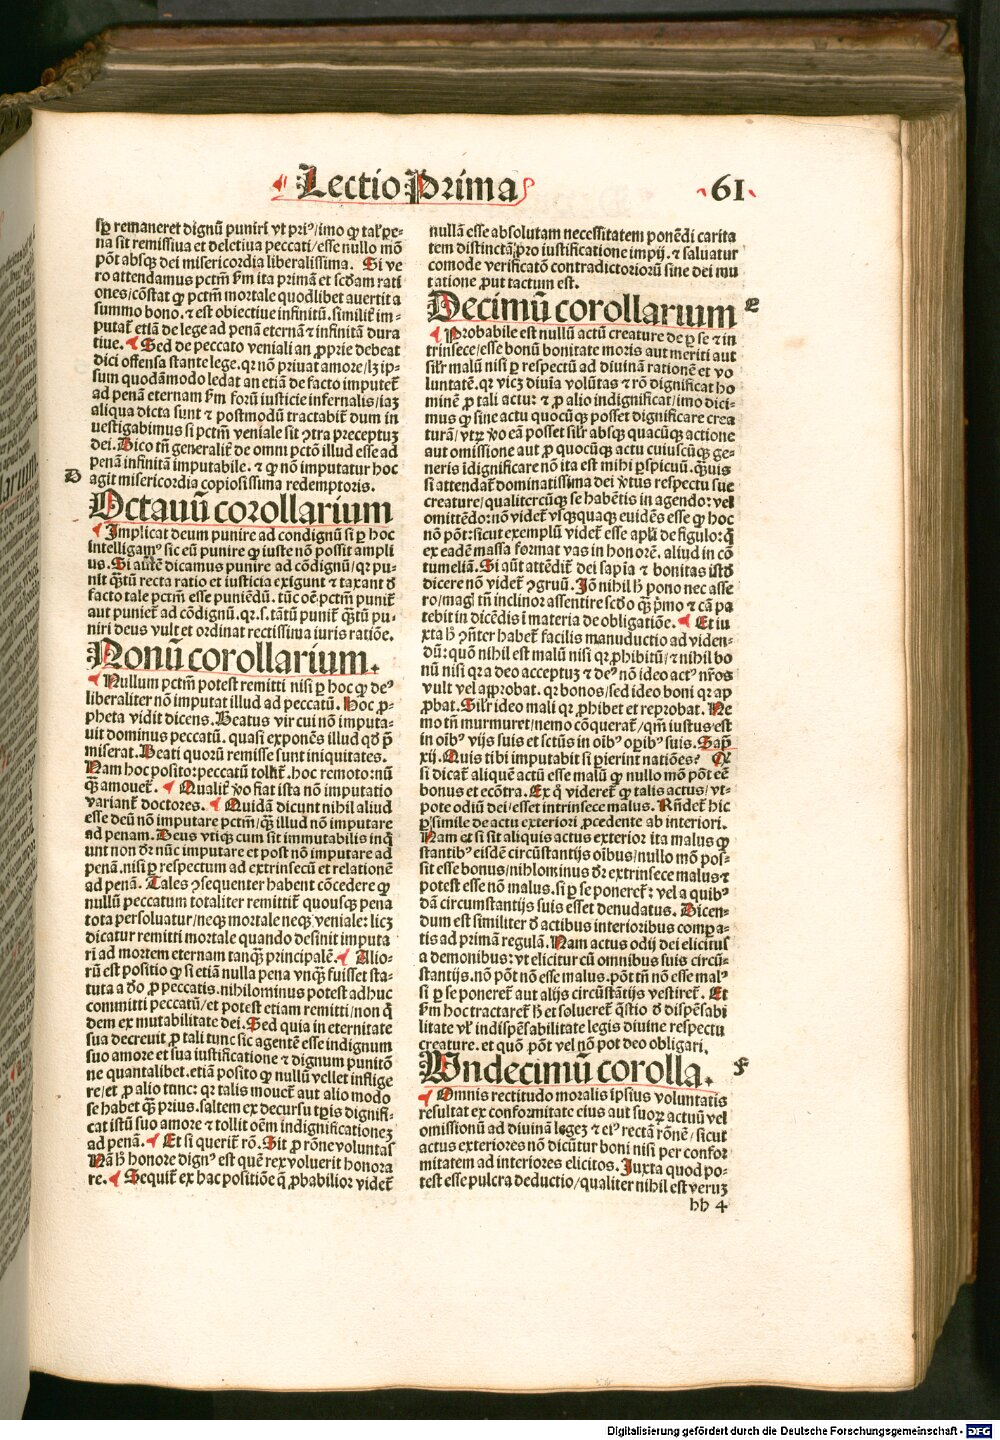 Lectio Prima
61
sp remaneret dignū puniri vt pri⁹/imo ꝙ talꝭ pe-
na sit remissiua et deletiua peccati/esse nullo mō
pōt absqꝫ dei misericordia liberalissima. Si ve
ro attendamus pctm̄ fm ita primā et scdam rati
ones/cōstat ꝙ pctm̄ mortale quodlibet auertit a
summo bono. ⁊ est obiectiue infinitū. similiṫ im-
putaṫ etiā de lege ad penā eternā ⁊ infinitā dura
tiue. Sed de peccato veniali an ꝓprie debeat
dici offensa stante lege. qꝛ nō priuat amore/lꝫ ip-
sum quodāmodo ledat an etiā de facto imputeṫ
ad penā eternam fm forū iusticie infernalis/iaꝫ
aliqua dicta sunt ⁊ postmodū tractabiṫ dum in
uestigabimus si pctm̄ veniale sit ꝯtra preceptuꝫ
dei. Dico tn̄ generaliṫ de omni pctō illud esse ad
penā infinitā imputabile. ⁊ ꝙ nō imputatur hoc
D
agit misericordia copiosissima redemptoris.
Octauū corollarium
Implicat deum punire ad condignū si ꝑ hoc
intelligam⁹ sic eū punire ꝙ iuste nō possit ampli
us. Si autē dicamus punire ad cōdignū/qꝛ pu-
nit q̄tū recta ratio et iusticia exigunt ⁊ taxant d̄
facto tale pctm̄ esse puniēdū. tūc oē pctm̄ puniṫ
aut punieṫ ad cōdignū. qꝛ.s. tātū puniṫ q̄tū pu-
niri deus vult et ordinat rectissima iuris ratiōe.
Nonū corollarium.
Nullum pctm̄ potest remitti nisi ꝑ hoc ꝙ de⁹
liberaliter nō imputat illud ad peccatū. Hoc ꝓ-
pheta vidit dicens. Beatus vir cui nō imputa-
uit dominus peccatū. quasi exponēs illud qd̄ p̄
miserat. Beati quorū remisse sunt iniquitates.
Nam hoc posito: peccatū tolliṫ. hoc remoto: nū
q̄ꝫ amoueṫ. Qualiṫ ꝟo fiat ista nō imputatio
varianṫ doctores. Quidā dicunt nihil aliud
esse deū nō imputare pctm̄/q̄ꝫ illud nō imputare
ad penam. Deus vtiqꝫ cum sit immutabilis inq̄
unt non dꝛ nūc imputare et post nō imputare ad
penā. nisi ꝑ respectum ad extrinsecū et relationē
ad penā. Tales ꝯsequenter habent cōcedere ꝙ
nullū peccatum totaliter remittiṫ quousqꝫ pena
tota persoluatur/neqꝫ mortale neqꝫ veniale: licꝫ
dicatur remitti mortale quando desinit imputa
ri ad mortem eternam tanq̄ꝫ principalē. Alio-
rū est positio ꝙ si etiā nulla pena vnq̄ꝫ fuisset sta-
tuta a dō ꝓ peccatis. nihilominus potest adhuc
committi peccatū/et potest etiam remitti/non q̄
dem ex mutabilitate dei. Sed quia in eternitate
sua decreuit ꝓ tali tunc sic agentē esse indignum
suo amore et sua iustificatione ⁊ dignum punitō
ne quantalibet. etiā posito ꝙ nullū vellet inflige
re/et ꝓ alio tunc: qꝛ talis moueṫ aut alio modo
se habet q̄ꝫ prius. saltem ex decursu tꝑis dignifi-
cat istū suo amore ⁊ tollit oēm indignificationeꝫ
ad penā. Et si queriṫ rō. Sit ꝓ rōne voluntas
Nā h̄ honore dign⁹ est quē rex voluerit honora
re. Sequiṫ ex hac positiōe q̄ ꝓbabilior videṫ
nullā esse absolutam necessitatem ponēdi carita
tem distinctā: pro iustificatione impij. ⁊ saluatur
comode verificatō contradictoriorū sine dei mu
tatione ꝓut tactum est.
Decimū corollarium
E
Probabile est nullū actū creature de ꝑ se ⁊ in
trinsece/esse bonū bonitate moris aut meriti aut
silr malū nisi ꝑ respectū ad diuinā rationē et vo
luntatē. qꝛ vicꝫ diuīa volūtas ⁊ rō dignificat ho
minē ꝓ tali actu: ⁊ ꝓ alio indignificat/imo dici-
mus ꝙ sine actu quocūqꝫ posset dignificare crea
turā/vtꝝ ꝟo eā posset silr absqꝫ quacūqꝫ actione
aut omissione aut ꝓ quocūqꝫ actu cuiuscūqꝫ ge-
neris īdignificare nō ita est mihi ꝑspicuū. q̄uis
si attendaṫ dominatissima dei ꝟtus respectu sue
creature/qualitercūqꝫ se habētis in agendo: vel
omittēdo: nō videṫ vsq̄quaqꝫ euidēs esse ꝙ hoc
nō pōt: sicut exemplū videṫ esse apli de figulo: q̄
ex eadē massa format vas in honorē. aliud in cō
tumeliā. Si aūt attendiṫ dei sapīa ⁊ bonitas istō
dicere nō videṫ ꝯgruū. Jō nihil h̄ pono nec asse
ro/magꝭ tn̄ inclinor assentire scdo q̄ꝫ p̄mo ⁊ cā pa
tebit in dicēdis ī materia de obligatiōe. Et iu
xta h̄ ꝯn̄ter habeṫ facilis manuductio ad viden-
dū: quō nihil est malū nisi qꝛ ꝓhibitū/⁊ nihil bo
nū nisi qꝛ a deo acceptuꝫ ⁊ de⁹ nō ideo act⁹ nr̄os
vult vel approbat. qꝛ bonos/sed ideo boni qꝛ ap
ꝓbat. Silr ideo mali qꝛ ꝓhibet et reprobat. Ne
mo tn̄ murmuret/nemo cōqueraṫ/qm̄ iustus est
in oīb⁹ vijs suis et sctūs in oīb⁹ oꝑib⁹ suis. Sap̄
xij. Quis tibi imputabit si ꝑierint natiōes? Qꝛ
si dicaṫ aliquē actū esse malū ꝙ nullo mō pōt eē
bonus et ecōtra. Ex q̄ videreṫ ꝙ talis actus/vt-
pote odiū dei/esset intrinsece malus. Rn̄deṫ hic
ꝑ simile de actu exteriori ꝓcedente ab interiori.
Nam et si sit aliquis actus exterior ita malus ꝙ
stantib⁹ eisdē circūstantijs oībus/nullo mō pos-
sit esse bonus/nihlominus dꝛ extrinsece malus ⁊
potest esse nō malus. si ꝑ se ponereṫ: vel a quib⁹
dā circumstantijs suis esset denudatus. Dicen-
dum est similiter d̄ actibus interioribus compa-
tis ad primā regulā. Nam actus odij dei elicitus
a demonibus: vt elicitur cū omnibus suis circū-
stantijs. nō pōt nō esse malus. pōt tn̄ nō esse mal⁹
si ꝑ se ponereṫ aut alijs circūstātijs vestireṫ. Et
fm hoc tractareṫ h̄ et solueret q̄stio d̄ dispēsabi
litate vꝉ indispēsabilitate legis diuine respectu
creature. et quō pōt vel nō pot deo obligari.
Undecimū corolla.
F
Omnis rectitudo moralis ipsius voluntatis
resultat ex conformitate eius aut suoꝝ actuū vel
omissionū ad diuinā legeꝫ ⁊ ei⁹ rectā rōnē/sicut
actus exteriores nō dicūtur boni nisi per confor
mitatem ad interiores elicitos. Juxta quod po-
test esse pulcra deductio/qualiter nihil est veruꝫ
hh 4
Digitalisierung gefördert durch die Deutsche Forschungsgemeinschaft - DFG